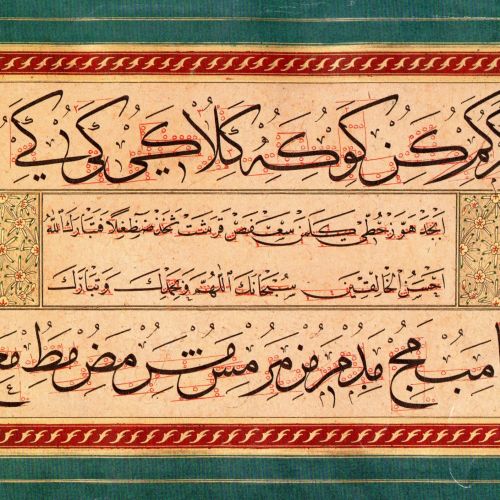 كم كن كو كه كلا كي كي كي
ابجد هوز حطي كلمن سعفص قرشت ثخذ ضظغلا فتبارك الله
احسن الخالقين سبحانك اللهم وبحمدك وتبارك
مب مج مد مر مز مر مس مش مص مط مع